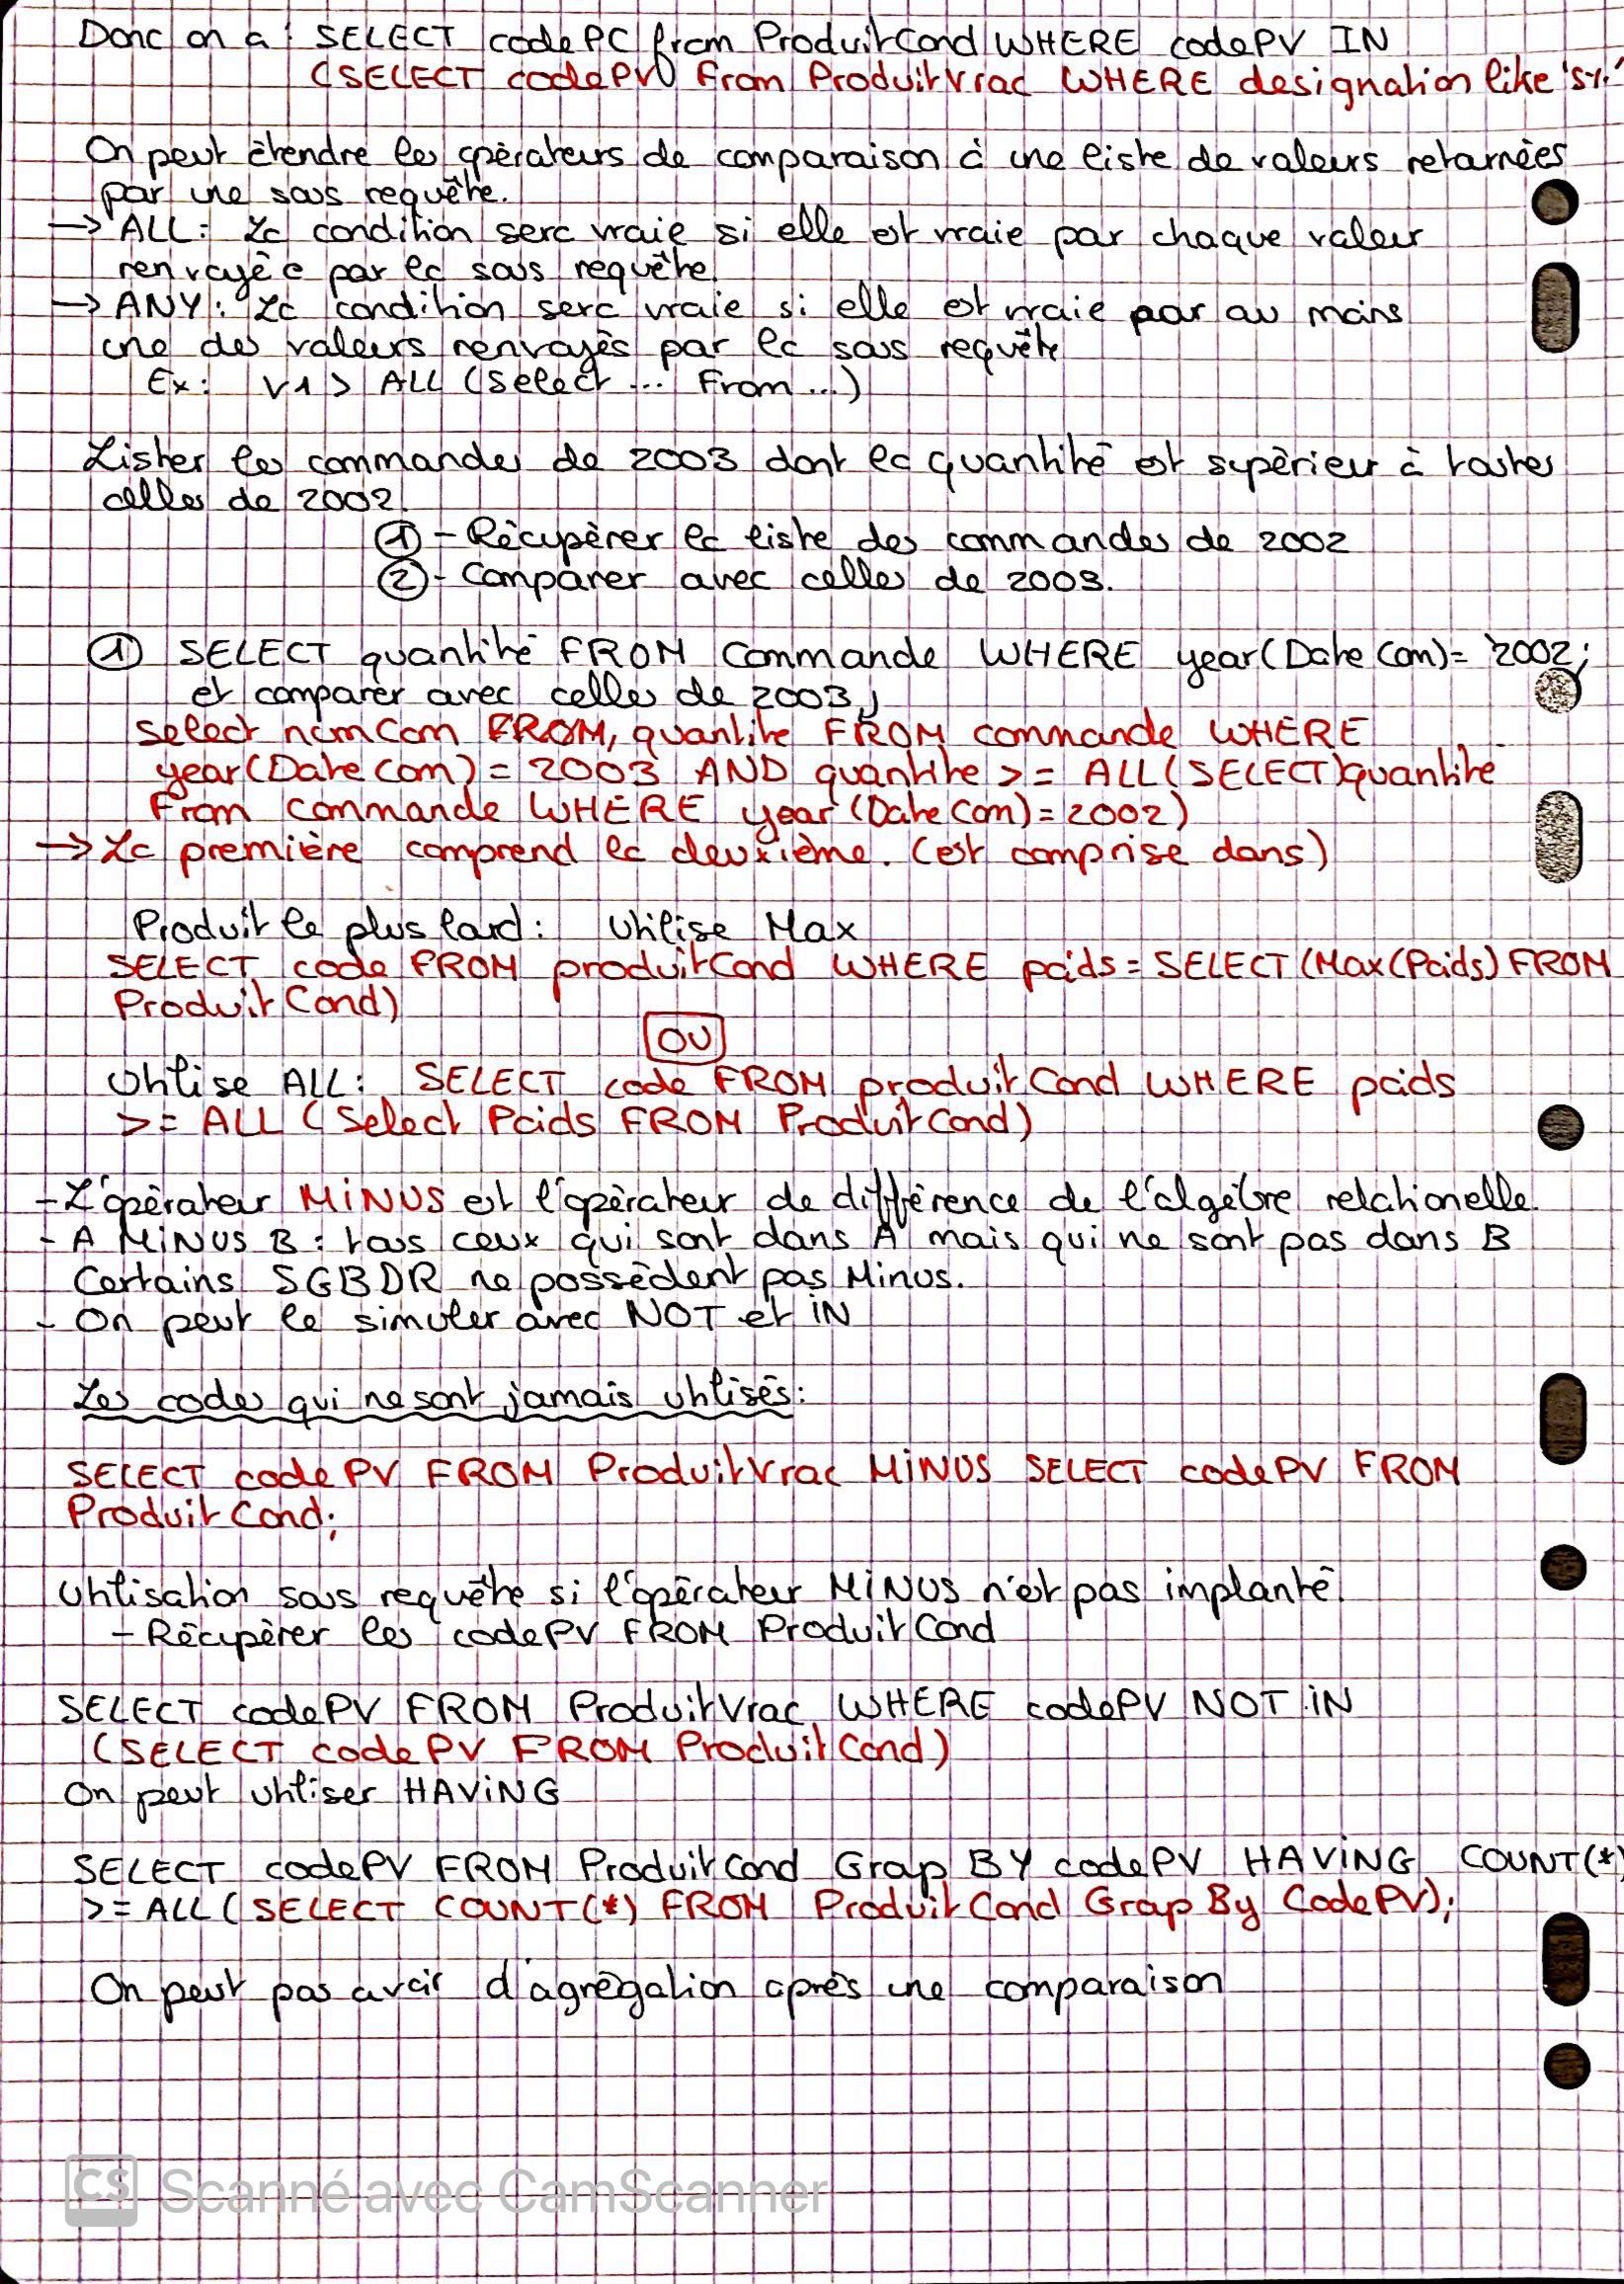 Donc on a : SELECT codePC from ProduitCond WHERE codePV IN
(SELECT codePV From ProduitVrac WHERE designation like 's%'
On peut étendre les opérateurs de comparaison à une liste de valeurs retournées
par une sous requête.
→ ALL : La condition sera vraie si elle est vraie par chaque valeur
renvoyée par la sous requête.
→ ANY : La condition sera vraie si elle est vraie par au moins
une des valeurs renvoyés par la sous requête
Ex: V1 > ALL (Select ... From ...)
Lister les commandes de 2003 dont la quantité est supérieur à toutes
celles de 2002.
① - Récupérer la liste des commandes de 2002
② - Comparer avec celles de 2003.
① SELECT quantité FROM Commande WHERE year(DateCom)= '2002;
et comparer avec celles de 2003,
Select numCom FROM, quantite FROM commande WHERE
year(DateCom) = 2003 AND quantite >= ALL(SELECT)quantite
From commande WHERE year(DateCom)=2002)
→ La première comprend la deuxième. (est comprise dans)
Produit le plus lourd : Utilise Max
SELECT code FROM produitCond WHERE poids = SELECT(Max(Poids) FROM
ProduitCond)
OU
Utilise ALL : SELECT code FROM produitCond WHERE poids
>= ALL (Select Poids FROM ProduitCond)
- L'opérateur MINUS est l'opérateur de différence de l'algèbre relationelle.
- A MINUS B : tous ceux qui sont dans A mais qui ne sont pas dans B
Certains SGBDR ne possèdent pas Minus.
- On peut le simuler avec NOT et IN
Les codes qui ne sont jamais utilisés :
SELECT codePV FROM ProduitVrac MINUS SELECT codePV FROM
ProduitCond;
Utilisation sous requête si l'opérateur MINUS n'est pas implanté.
- Récupérer les codePV FROM ProduitCond
SELECT codePV FROM ProduitVrac WHERE codePV NOT IN
(SELECT codePV FROM ProduitCond)
On peut utiliser HAVING
SELECT codePV FROM ProduitCond Group BY codePV HAVING COUNT(*)
>= ALL (SELECT COUNT(*) FROM ProduitCond Group By CodePV);
On peut pas avoir d'agrégation après une comparaison
CS Scanné avec CamScanner